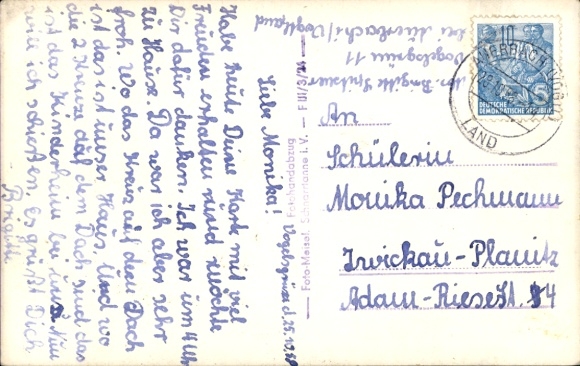 Vogelsgrün d. 25.1.2.58
Liebe Monika!
Habe heute Deine Karte mit viel
Freuden erhalten und möchte
Dir dafür danken. Ich war um 4 Uhr
zu Hause. Da war ich aber sehr
froh. Wo das Kreuz auf dem Dach
ist das ist unser Haus. Und wo
die 2 Kreuze auf dem Dach sind das
ist das Kinderheim bei uns. Nun
will ich schließen es grüßt Dich
Brigitte
Abs. Brigitte
Vogelsgrün 11
bei Auerbach/Vogtland
Foto-Meisel, Schönheide i. V. — F III/3/
Fotohandabzug
10
AUERBACH (VOGT
LAND)
5
DEUTSCHE
DEMOKRATISCHE REPUBLIK
An
Schülerin
Monika Pechmann
Zwickau-Planitz
Adam-Ries St. 4